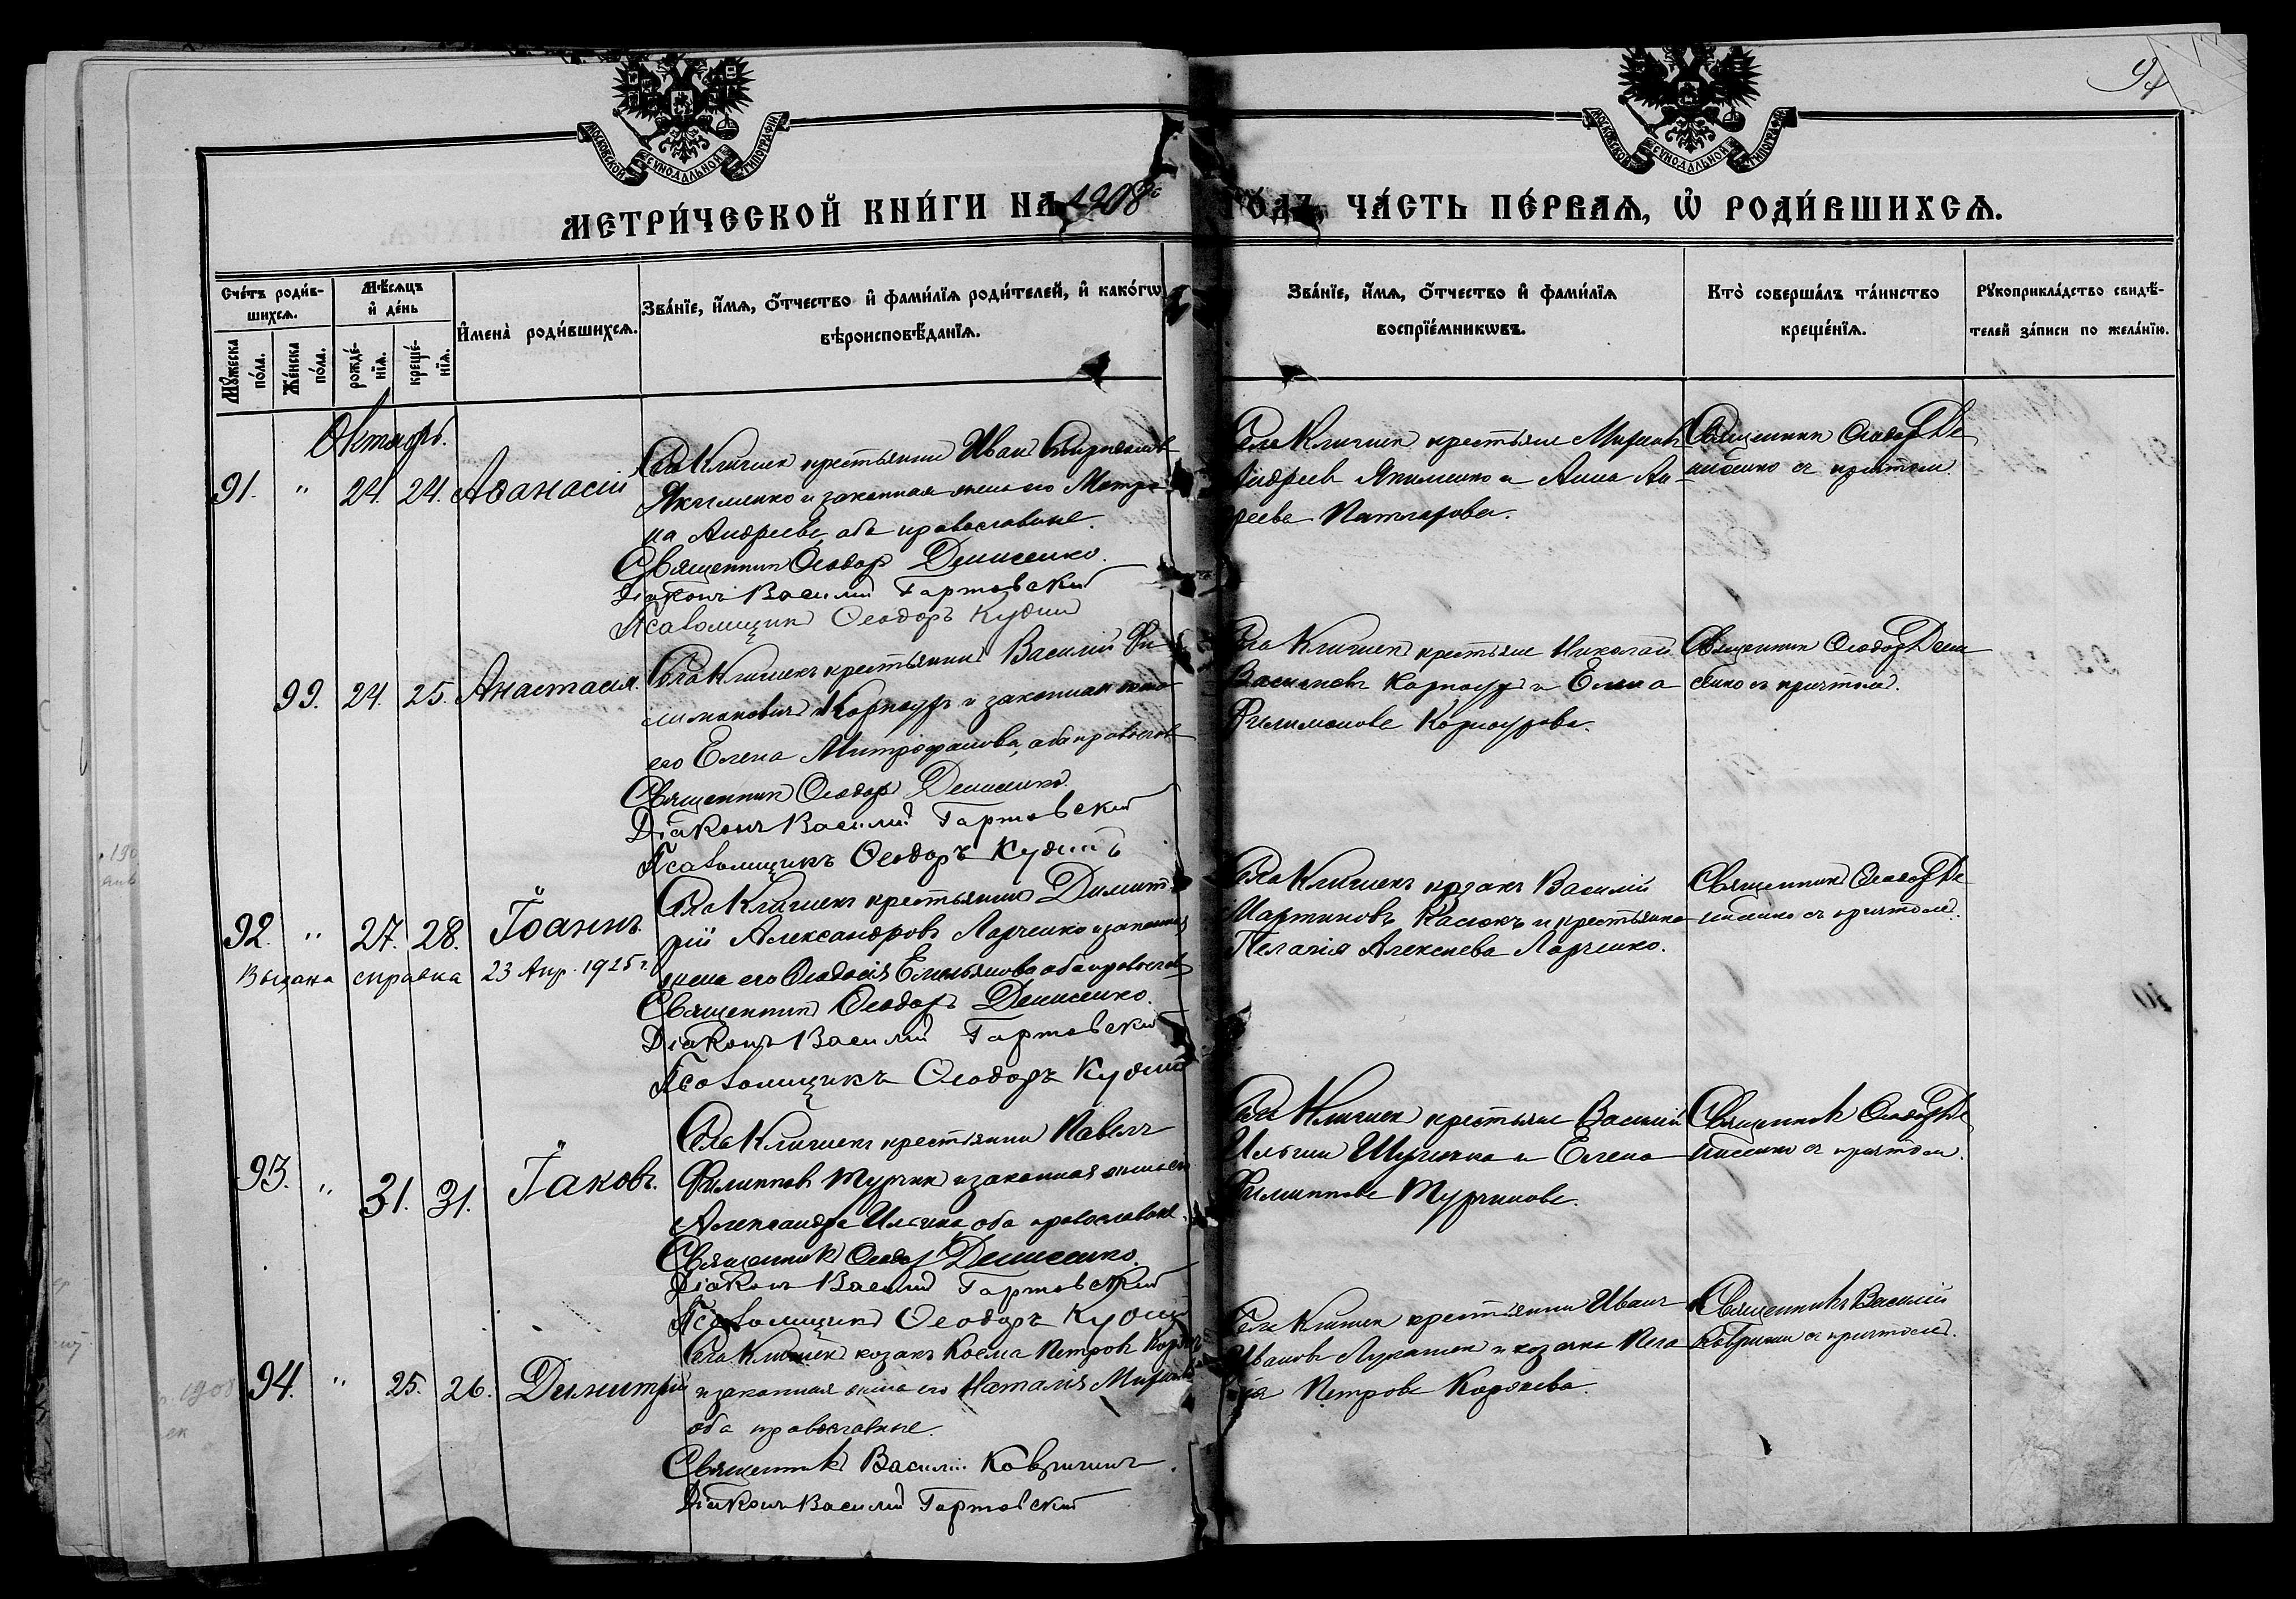 МОСКОВСКОЙ СѴНОДАЛЬНОЙ ТИПОГРАФІИ
МОСКОВСКОЙ СѴНОДАЛЬНОЙ ТИПОГРАФІИ
МЕТРИ́ЧЕСКОЙ КНИ́ГИ НА 1908й ГО́ДЪ, ЧА́СТЬ ПЕ́РВАѦ, Ѡ҆ РОДИ́ВШИХСѦ.
Сче́тъ роди́в-
шихсѧ.
Мѣ́сѧцъ
и҆ де́нь
Мꙋ́жеска по́ла.
Же́нска по́ла.
рожде́-нїѧ.
креще́-нїѧ.
И҆мена̀ роди́вшихсѧ.
Зва́нїе, и҆́мѧ, ѻ҆́тчество и҆ фами́лїѧ роди́телей, и҆ како́гѡ
вѣроисповѣ́данїѧ.
Зва́нїе, и҆́мѧ, ѻ҆́тчество и҆ фами́лїѧ
воспрїе́мникѡвъ.
Кто̀ соверша́лъ та́инство
креще́нїѧ.
Рꙋкоприкла́дство свидѣ́-
телей за́писи по жела́нїю.
Октябрь.
91. " 24. 24. Аѳанасій
Села Клишекъ крестьянинъ Иванъ
Якименко и законная жена его Матро-
на Андреева, оба православные.
Священникъ Ѳеодоръ Денисенко.
Діаконъ Василій Гартовскій
Псаломщикъ Ѳеодоръ Кудин
Села Клишекъ крестьяне Миронъ
Андреевъ Якименко и Анна Ан-
реева
Священникъ Ѳеодоръ Де-
нисенко съ причтомъ.
99. 24. 25. Анастасія.
Села Клишекъ крестьянинъ Василій Фи-
лимоновичъ Корноуръ и законная жена
его Елена Митрофанова, оба православ
Священникъ Ѳеодоръ Денисенко.
Діаконъ Василій Гартовскій
Псаломщикъ Ѳеодоръ Кудинъ
Села Клишекъ крестьяне Николай
Васильевъ Корноуръ и Елена
Филимонова Корноурова.
Священникъ Ѳеодоръ Дени-
сенко съ причтомъ.
92. " 27. 28. Іоаннъ.
Выдана справка 23 Апр. 1925 г.
Села Клишекъ крестьянинъ Димит-
рій Александровъ Ларченко и законная
жена его Ѳеодосія Емельянова оба православ
Священникъ Ѳеодоръ Денисенко.
Діаконъ Василій Гартовскій
Псаломщикъ Ѳеодоръ Кудинъ
Села Клишекъ козакъ Василій
Мартиновъ Касюкъ и крестьянка
Пелагія Алексѣева Ларченко.
Священникъ Ѳеодоръ Де-
нисенко съ причтомъ.
93. " 31. 31. Іаковъ.
Села Клишекъ крестьянинъ Павелъ
Филипповъ Турчинъ и законная жена его
Александра Ильина оба православные.
Священникъ Ѳеодоръ Денисенко.
Діаконъ Василій Гартовскій
Псаломщикъ Ѳеодоръ Кудинъ
Села Клишекъ крестьяне Василій
Ильинъ и Елена
Филиппова Турчинова.
Священникъ Ѳеодоръ Де-
нисенко съ причтомъ.
94. " 25. 26. Димитрій
Села Клишекъ козакъ Косма Петровъ
и законная жена его Наталія
оба православные.
Священникъ Василій Ковригинъ.
Діаконъ Василій Гартовскій
Села Клишекъ крестьянинъ Иванъ
Ивановъ и козачка Пела-
гія Петрова Корякова.
Священникъ Василій
Ковригинъ съ причтомъ.